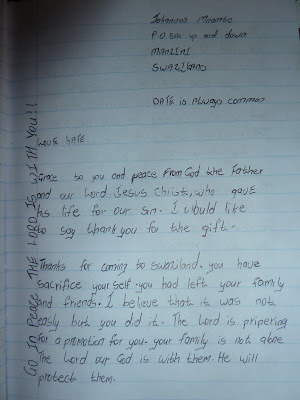 Johannes Maambe
P.O Box up and down
MANZINI
SWAZILAND
DATE is Always common
LOVE KATE
Grace to you and peace From God the Father
and our Lord Jesus Christ, who gave
his life for our sin. I would like
to say thank you for the gift.
Thanks for coming to swaziland. you have
sacrifice yourself. you had left your family
and friends. I believe that it was not
easly but you did it. The Lord is pripering
for a promotion for you. your family is not alone
The Lord our God is with them. He will
protect them.
GO IN PEACE THE LORD IS WITH YOU!!